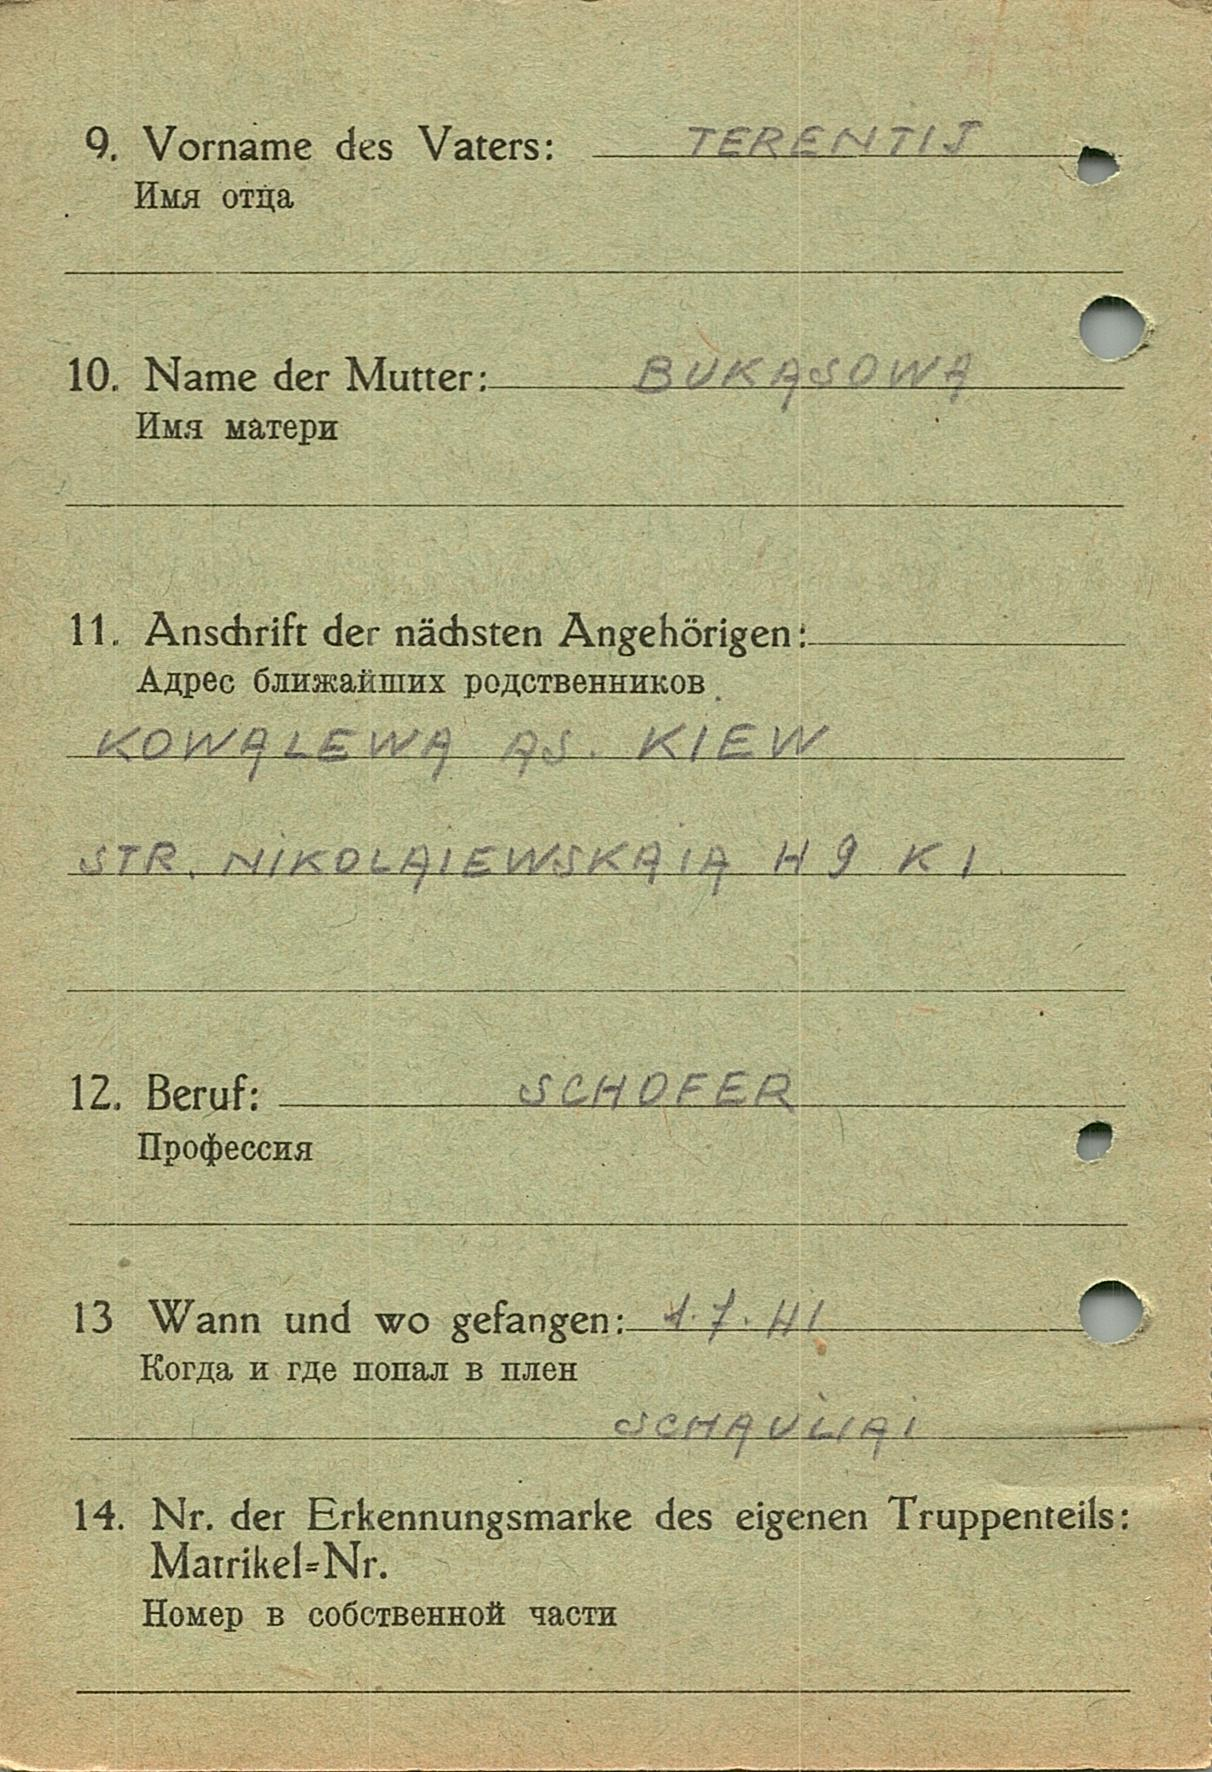 9. Vorname des Vaters: TERENTIJ
Имя отца
10. Name der Mutter: BUKASOWA
Имя матери
11. Anschrift der nächsten Angehörigen:
Адрес ближайших родственников
KOWALEWA AS. KIEW
STR. NIKOLAIEWSKAIA H 9 K 1
12. Beruf: SCHOFER
Профессия
13 Wann und wo gefangen: 1.7.41
Когда и где попал в плен
SCHAULIAI
14. Nr. der Erkennungsmarke des eigenen Truppenteils:
Matrikel=Nr.
Номер в собственной части